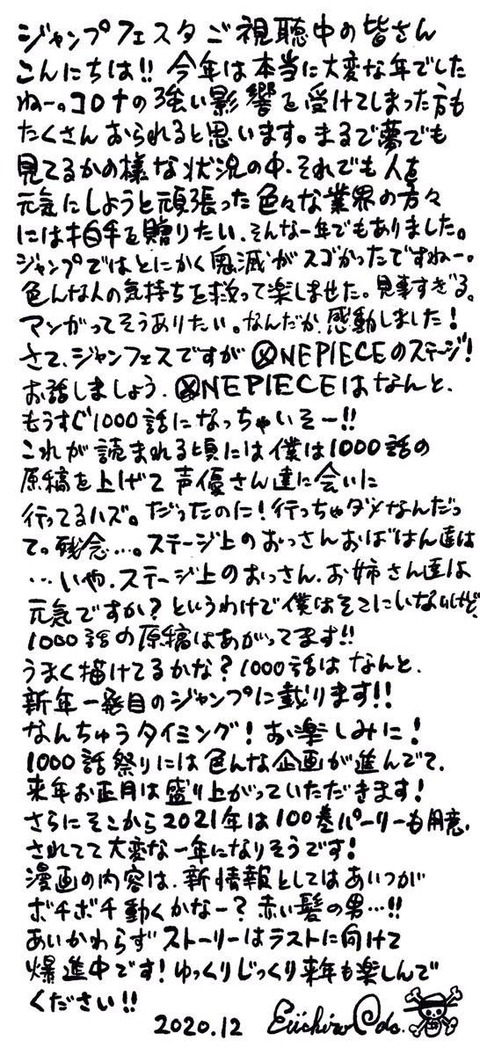 ジャンプフェスタご視聴中の皆さん
こんにちは!! 今年は本当に大変な年でした
ねー。コロナの強い影響を受けてしまった方も
たくさんおられると思います。まるで夢でも
見てるかの様な状況の中、それでも人を
元気にしようと頑張った色々な業界の方々
には拍手を贈りたい、そんな一年でもありました。
ジャンプではとにかく鬼滅がスゴかったですねー。
色んな人の気持ちを救って楽しませた。見事すぎる。
マンガってそうありたい。なんだか感動しました!
さて、ジャンフェスですがONEPIECEのステージ!
お話しましょう、ONEPIECEはなんと、
もうすぐ1000話になっちゃいそー!!
これが読まれる頃には僕は1000話の
原稿を上げて声優さん達に会いに
行ってるハズ。だったのに!行っちゃダメなんだっ
て。残念…。ステージ上のおっさんおばはん達は
…いや、ステージ上のおっさん、お姉さん達は
元気ですか?というわけで僕はそこにいないけど、
1000話の原稿はあがってます!!
うまく描けてるかな?1000話はなんと、
新年一発目のジャンプに載ります!!
なんちゅうタイミング!お楽しみに!
1000話祭りには色んな企画が進んでて、
来年お正月は盛り上がっていただきます!
さらにそこから2021年は100巻パーリーも用意、
されてて大変な一年になりそうです!
漫画の内容は、新情報としてはあいつが
ボチボチ動くかなー?赤い髪の男…!!
あいかわらずストーリーはラストに向けて
爆進中です!ゆっくりじっくり来年も楽しんで
ください!!
2020.12 Eiichiro Oda.